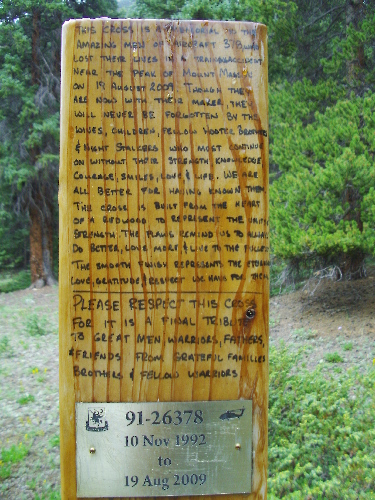 THIS CROSS IS A MEMORIAL TO THE
AMAZING MEN OF AIRCRAFT 378 WHO
LOST THEIR LIVES IN A TRAINING ACCIDENT
NEAR THE PEAK OF MOUNT MASSIVE
ON 19 AUGUST 2009. THOUGH THEY
ARE NOW WITH THEIR MAKER, THEY
WILL NEVER BE FORGOTTEN BY THE
WIVES, CHILDREN, FELLOW HOOTER BROTHERS
& NIGHT STALKERS WHO MOST CONTINUE
ON WITHOUT THEIR STRENGTH KNOWLEDGE
COURAGE, SMILES, LOVE & LIFE. WE ARE
ALL BETTER FOR HAVING KNOWN THEM
THE CROSS IS BUILT FROM THE HEART
OF A REDWOOD TO REPRESENT THE
STRENGTH. THE PLANS REMIND US TO ALWAYS
DO BETTER, LOVE MORE & LIVE TO THE FULLEST
THE SMOOTH FINISH REPRESENTS THE ETERNAL
LOVE, GRATITUDE & RESPECT WE HAVE FOR THEM
PLEASE RESPECT THIS CROSS
FOR IT IS A FINAL TRIBUTE
TO GREAT MEN, WARRIORS, FATHERS,
& FRIENDS FROM GRATEFUL FAMILIES
BROTHERS & FELLOW WARRIORS
91-26378
10 Nov 1992
to
19 Aug 2009